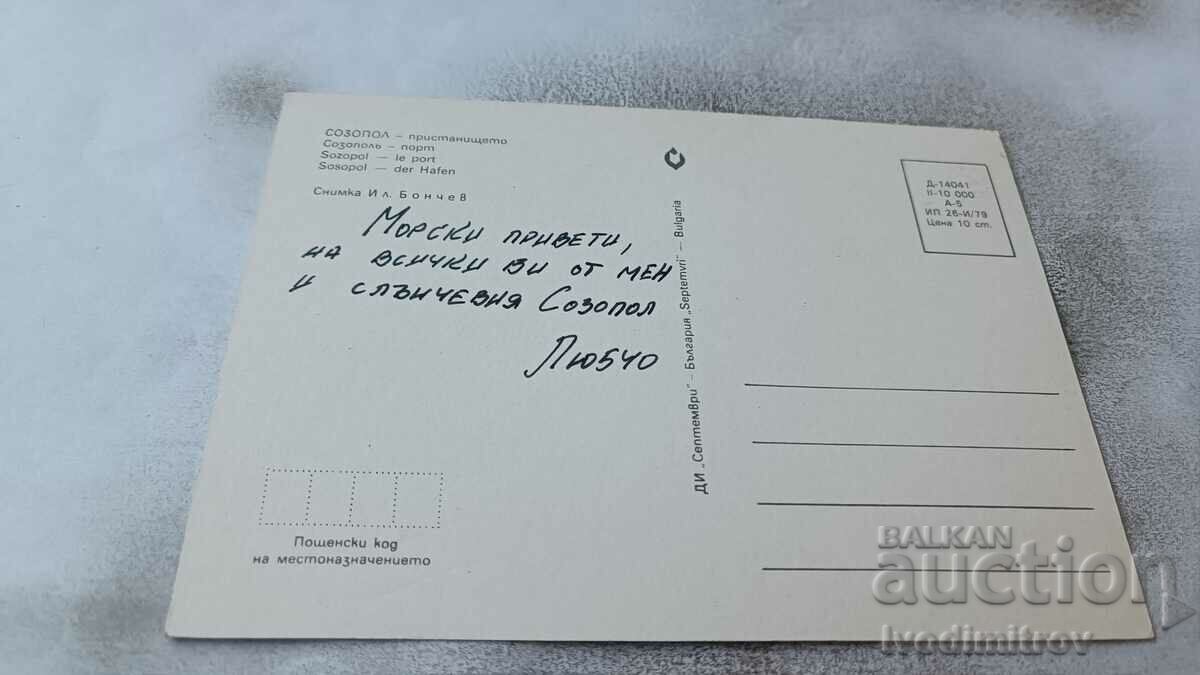 СОЗОПОЛ – пристанището
Созополь – порт
Sozopol – le port
Sosopol – der Hafen
Снимка Ил. Бончев
Морски привети,
на всички ви от мен
и слънчевия Созопол
Любчо
Пощенски код
на местоназначението
ДИ „Септември" – България „Septemvri" – Bulgaria
Д-14041
II-10 000
А-5
ИП 26-И/79
Цена 10 ст.
BALKAN
auction
Ivodimitrov